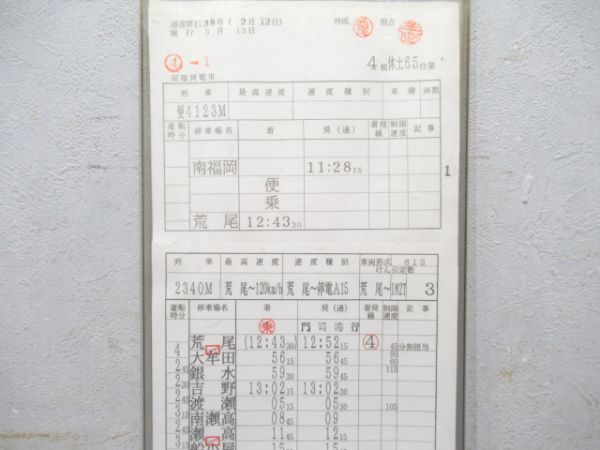 運達第1138号(2月13日)
施行 3月 13日
作成 照合
④→1
4組休土65仕業
南福岡電車
列 車 最高速度 速度種別 車種 両数
便4123M
運転時分 停車場名 着 発(通) 着発線 制限速度 記事
南福岡 11:28 15
便
乗
荒尾 12:43 30
1
列 車 最高速度 速度種別 車両形式 813 けん引定数
2340M 荒尾~120km/h 荒尾~停電A15 荒尾~1M2T 3
運転時分 停車場名 着 発(通) 着発線 制限速度 記事
乗 門司港行
荒尾 (12:43 30) 12:52 15 ④ 45 分割担当
4 大牟田 56 15 56 45 95 60
2 45 銀水 59 30 59 45 115
2 30 吉野 13:02 15 13:02 30
2 45 渡瀬 05 15 05 30 105
3 15 南瀬高 08 45 09
2 45 瀬高 11 45 12 15